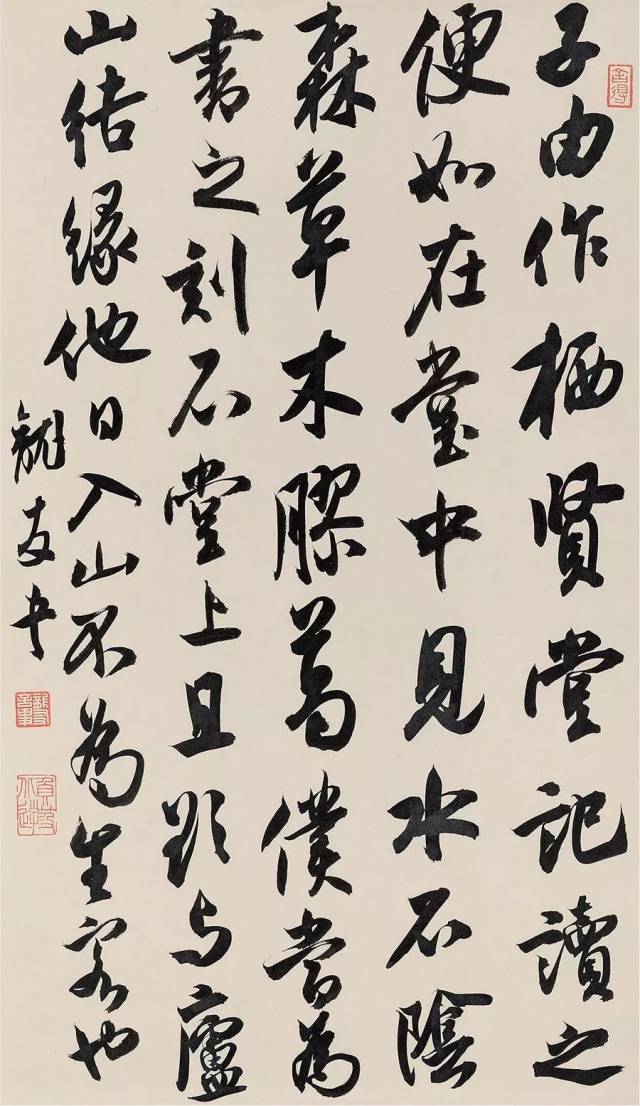 子由作栖賢堂記讀之
便如在堂中見水石陰
森草木膠葛僕當為
書之刻石堂上且欲与廬
山结緣他日入山不為生客也
龍友書
舍得